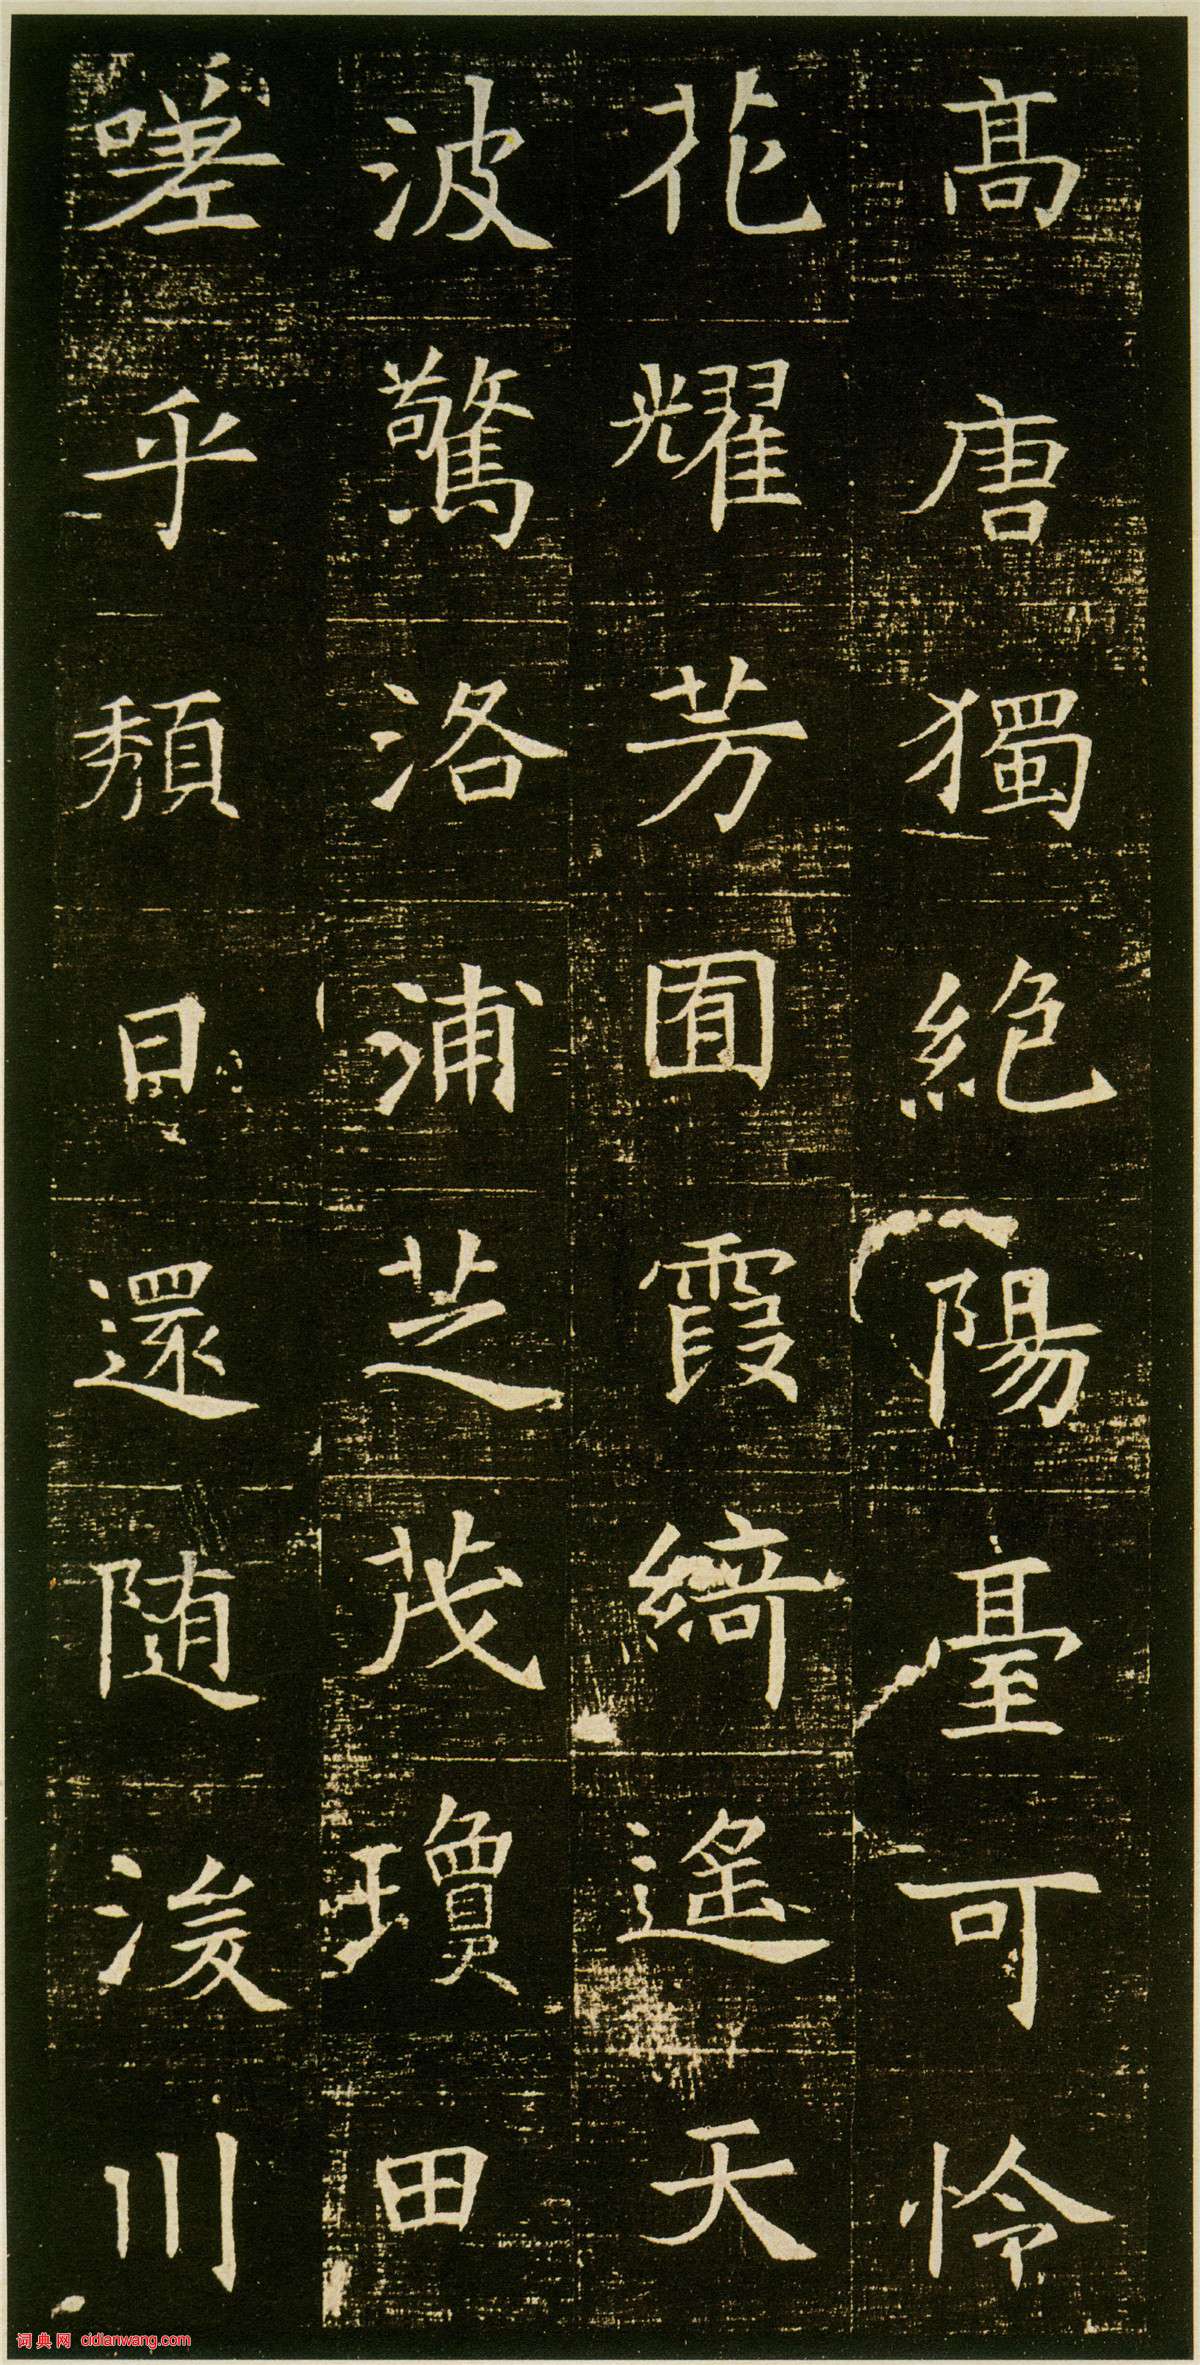 高唐獨絕陽臺可怜
花耀芳囿霞綺遙天
波驚洛浦芝茂瓊田
嗟乎頹日還随浚川
词典网 cidianwang.com